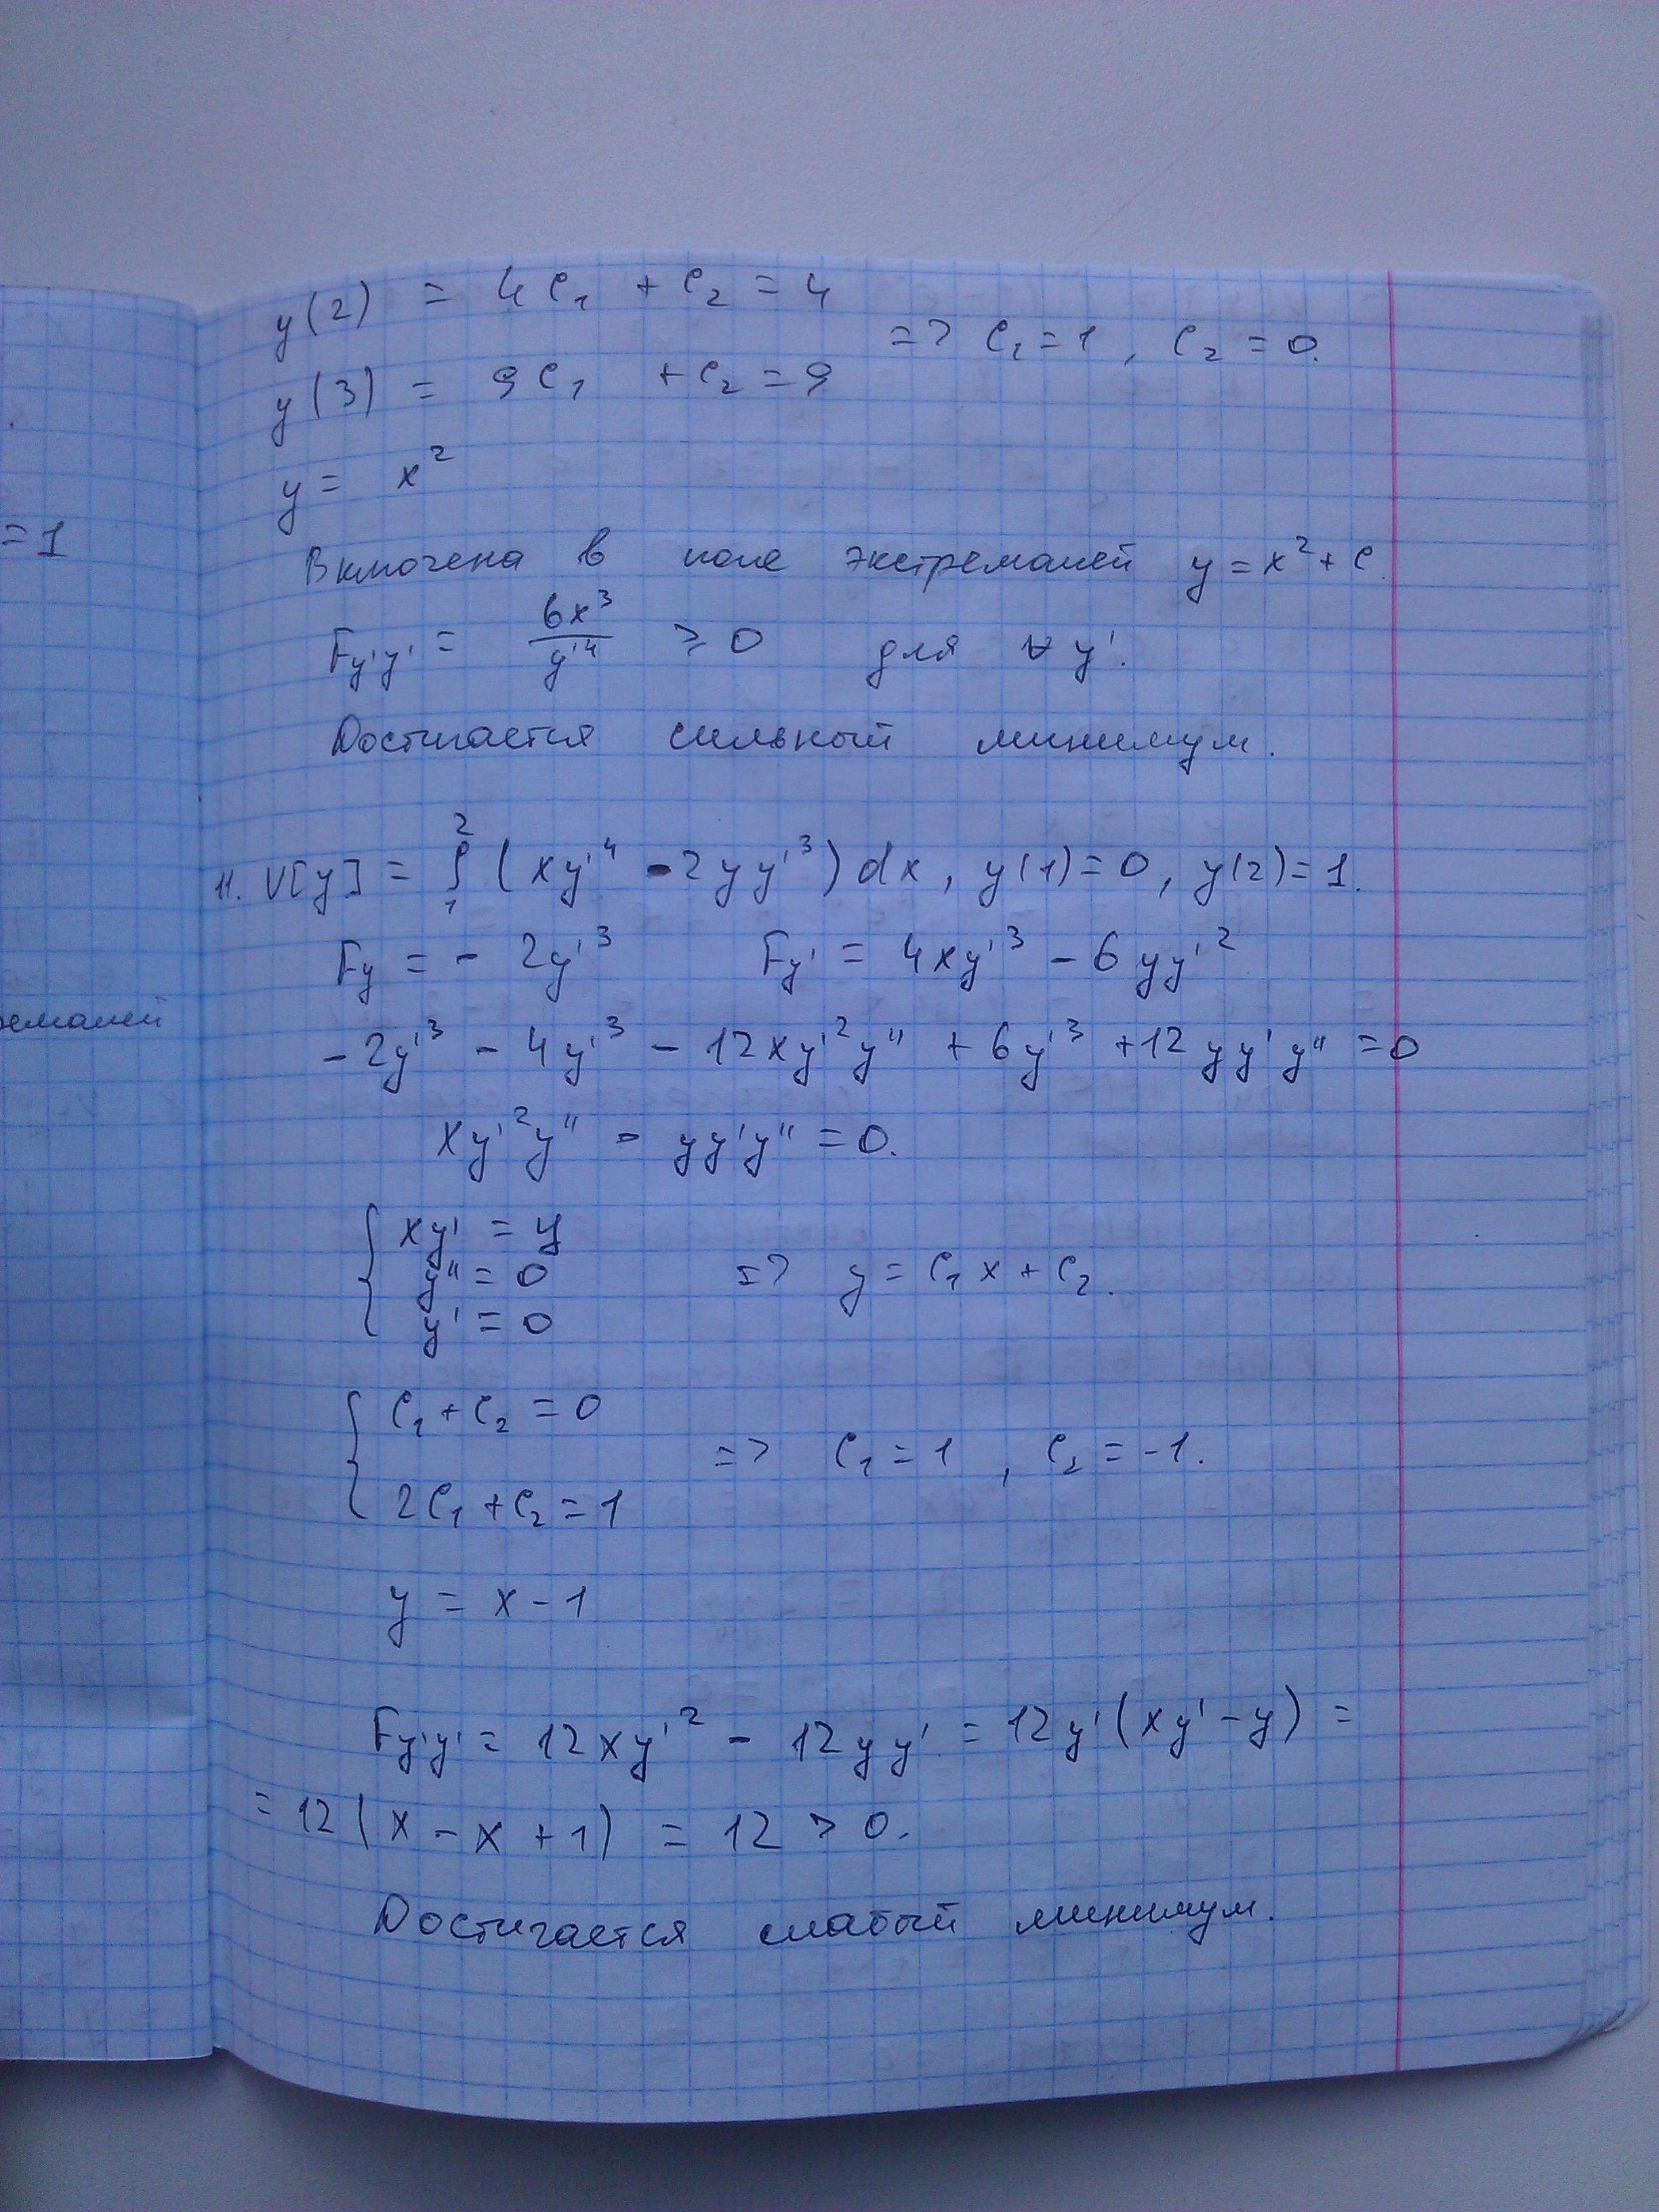 =1
ремалей
y(2) = 4C₁ + C₂ = 4
=> C₁ = 1, C₂ = 0.
y(3) = 9C₁ + C₂ = 9
y = x²
Включена в поле экстремалей y = x² + C.
Fy'y' = 6x³/y'⁴ ≥ 0 для ∀ y'.
Достигается сильный минимум.
11. V[y] = ∫₁² (xy'⁴ - 2yy'³) dx, y(1) = 0, y(2) = 1.
Fy = - 2y'³ Fy' = 4xy'³ - 6yy'²
- 2y'³ - 4y'³ - 12xy'²y'' + 6y'³ + 12yy'y'' = 0
xy'²y'' - yy'y'' = 0.
{ xy' = y
y'' = 0 => y = C₁x + C₂.
y' = 0
{ C₁ + C₂ = 0
=> C₁ = 1, C₂ = -1.
2C₁ + C₂ = 1
y = x - 1
Fy'y' = 12xy'² - 12yy' = 12y'(xy' - y) =
= 12(x - x + 1) = 12 > 0.
Достигается слабый минимум.